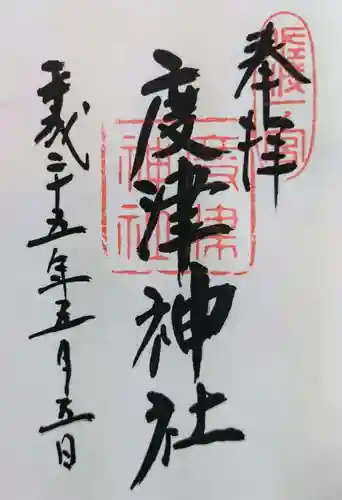 奉拝
度津神社
平成二十五年五月五日
佐渡一宮
度津神社